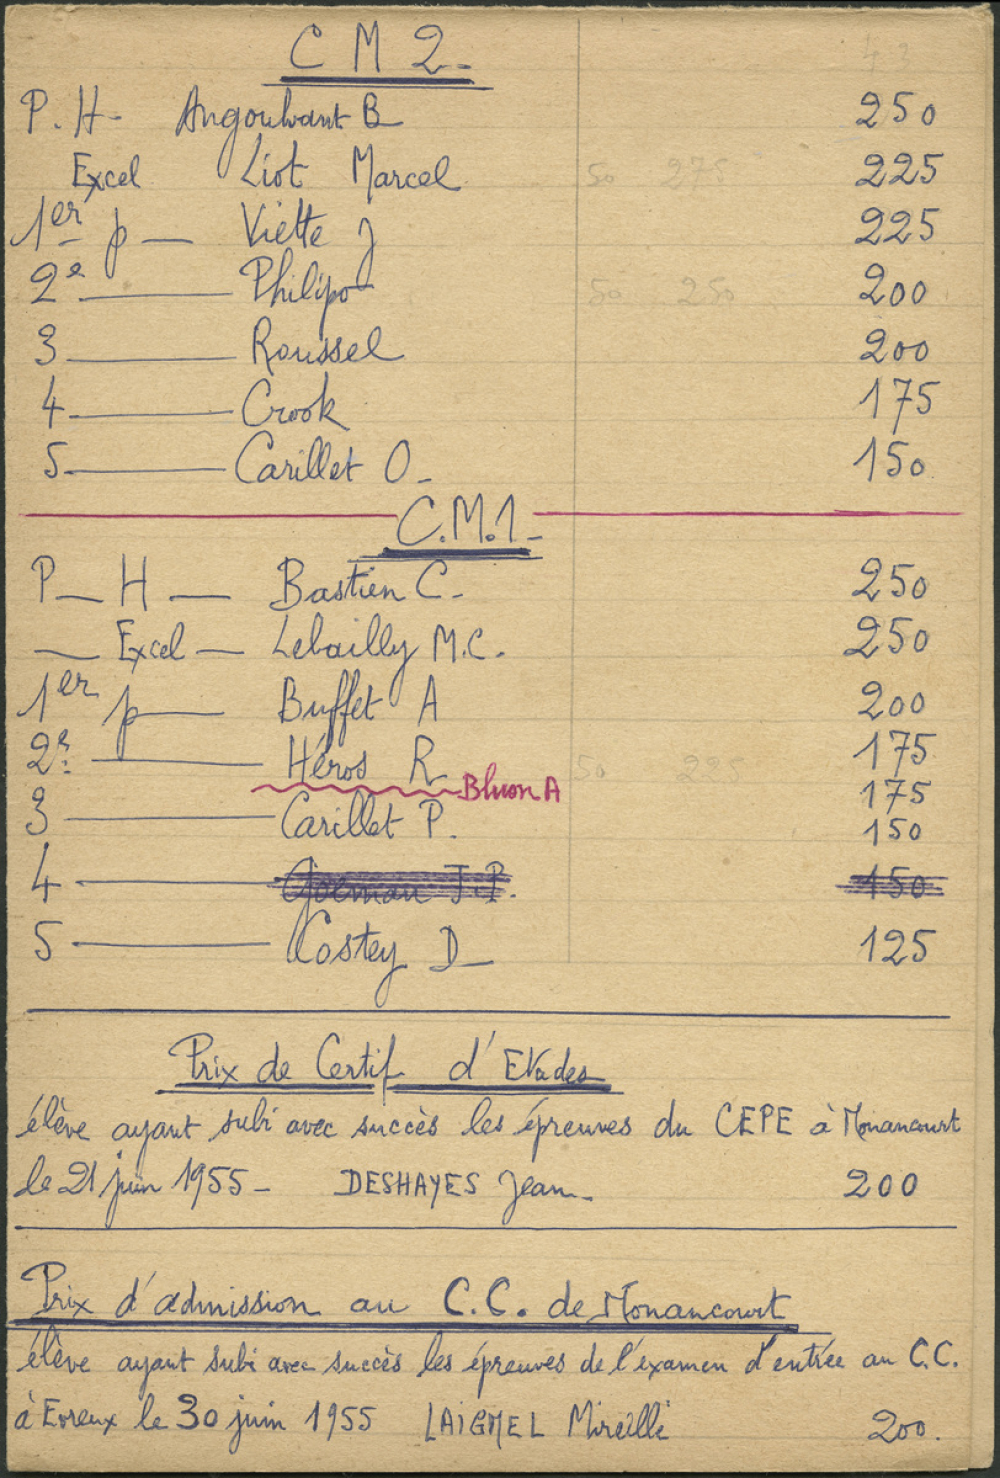 C M 2
P. H- Angoulvant B 250
Excel Liot Marcel 50 275 225
1er p — Viette J 225
2e — Philippo 50 250 200
3 — Roussel 200
4 — Crook 175
5 — Carillet O. 150
C.M.1-
P — H — Bastien C. 250
— Excel — Lebailly M.C. 250
1er p — Buffet A 200
2e — Héros R 50 225 175
Bluon A 175
3 — Carillet P. 150
4 — J.P. 150
5 — Costey D 125
Prix de Certif d'Etudes
élève ayant subi avec succès les épreuves du CEPE à Nonancourt
le 21 juin 1955 - DESHAYES Jean. 200
Prix d'admission au C.C. de Nonancourt
élève ayant subi avec succès les épreuves de l'examen d'entrée au C.C.
à Evreux le 30 juin 1955 LAIGNEL Mireille 200.